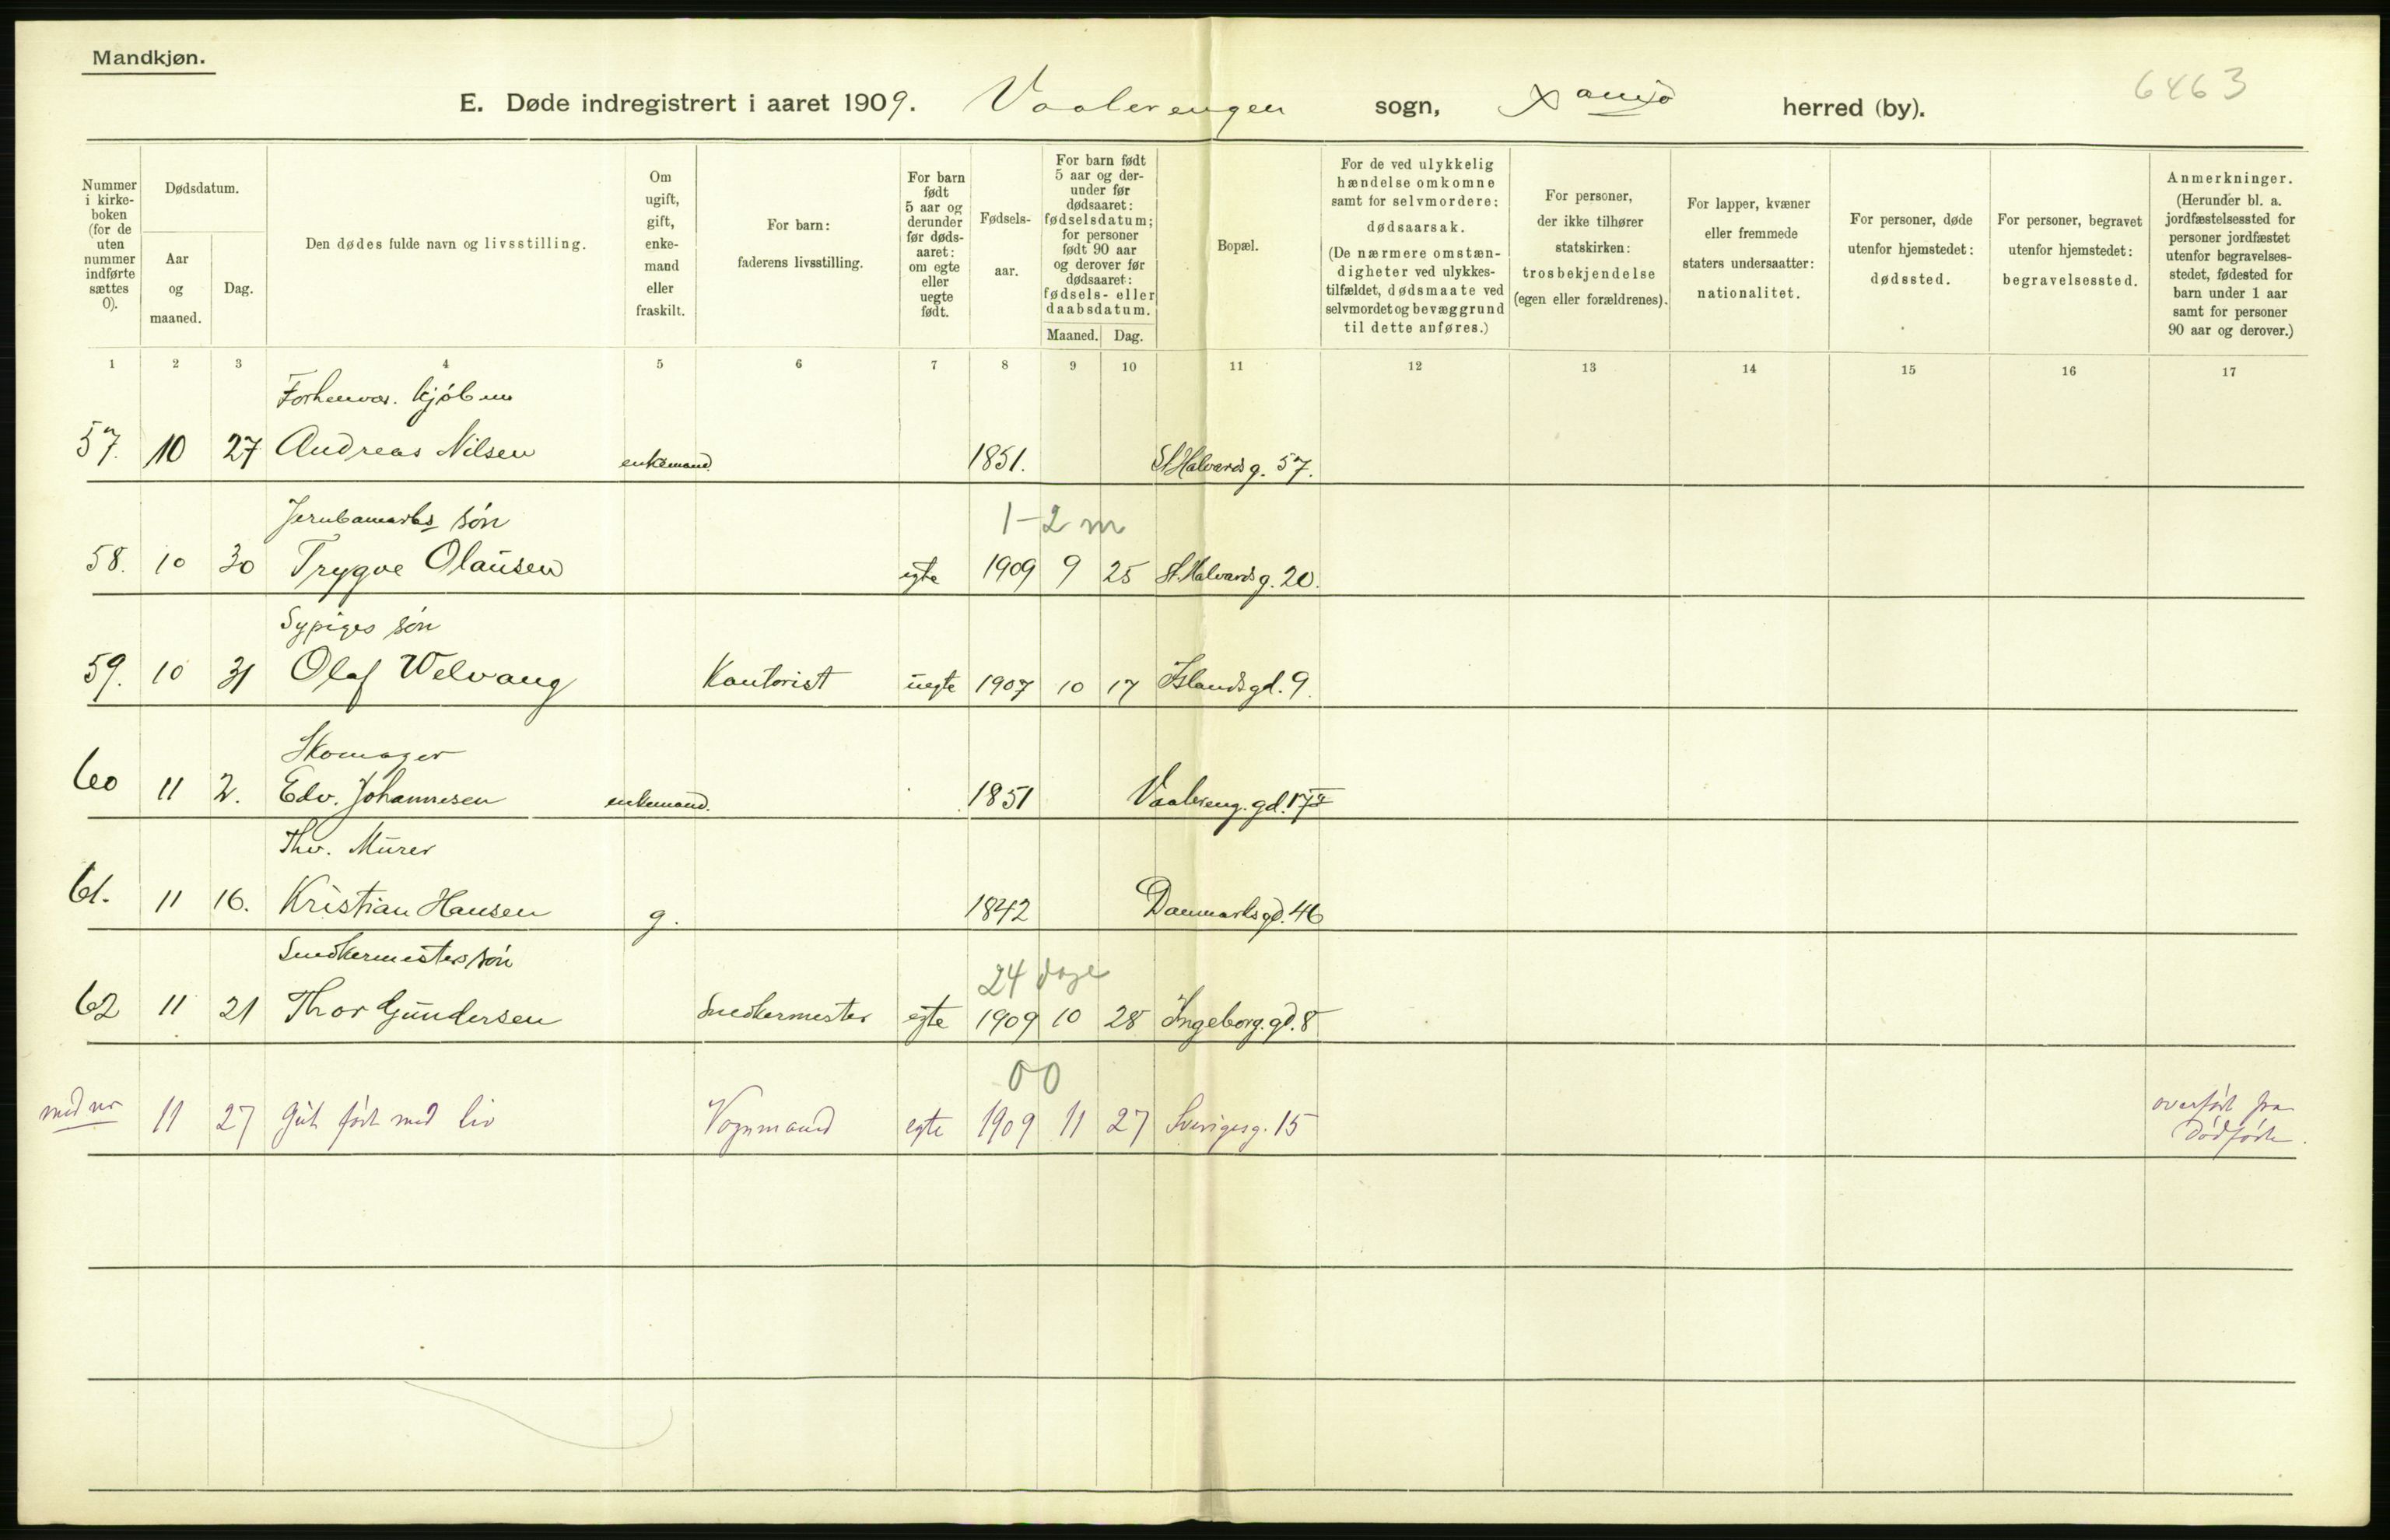 Mandkjøn.
E. Døde indregistrert i aaret 1909. Vaalerengen sogn, Xania herred (by). 6463
Nummer i kirke-boken (for de uten nummer indførte sættes 0).
Dødsdatum.
Aar og maaned.
Dag.
Den dødes fulde navn og livsstilling.
Om ugift, gift, enke-mand eller fraskilt.
For barn: faderens livsstilling.
For barn født 5 aar og derunder før døds-aaret: om egte eller uegte født.
Fødsels-aar.
For barn født 5 aar og der-under før dødsaaret: fødselsdatum; for personer født 90 aar og derover før dødsaaret: fødsels- eller daabsdatum.
Maaned. Dag.
Bopæl.
For de ved ulykkelig hændelse omkomne samt for selvmordere: dødsaarsak. (De nærmere omstæn-digheter ved ulykkes-tilfældet, dødsmaate ved selvmordet og bevæggrund til dette anføres.)
For personer, der ikke tilhører statskirken: trosbekjendelse (egen eller forældrenes).
For lapper, kvæner eller fremmede staters undersaatter: nationalitet.
For personer, døde utenfor hjemstedet: dødssted.
For personer, begravet utenfor hjemstedet: begravelsessted.
Anmerkninger. (Herunder bl. a. jordfæstelsessted for personer jordfæstet utenfor begravelses-stedet, fødested for barn under 1 aar samt for personer 90 aar og derover.)
1 2 3 4 5 6 7 8 9 10 11 12 13 14 15 16 17
Forhenvær. kjøbm
57. 10 27 Andreas Nilsen enkemand 1851. St Halvards g. 57.
søn 1-2 m
58. 10 30 Trygve Olausen egte 1909 9 25 St. Halvards g. 20.
Sypiges søn
59. 10 31 Olaf Velvang Kontorist uegte 1907 10 17 Islandsgd. 9.
Skomager
60 11 2. Edv. Johannesen enkemand. 1851 Vaalereng. gd. 17 I
Thv. Murer
61. 11 16. Kristian Hansen g. 1842 Danmarksgd. 46
Snedkermesters søn 24 dage
62 11 21 Thor Gundersen Snedkermester egte 1909 10 28 Ingeborg. gd. 8
00
11 27 Gut født med liv Vognmand egte 1909 11 27 Sverigesg. 15 overført fra
Dødfødte.